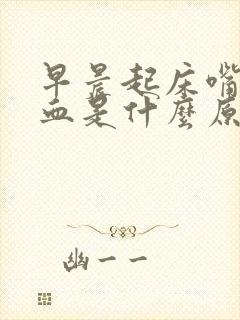 早晨起床嘴
血是什麼原
幽一一